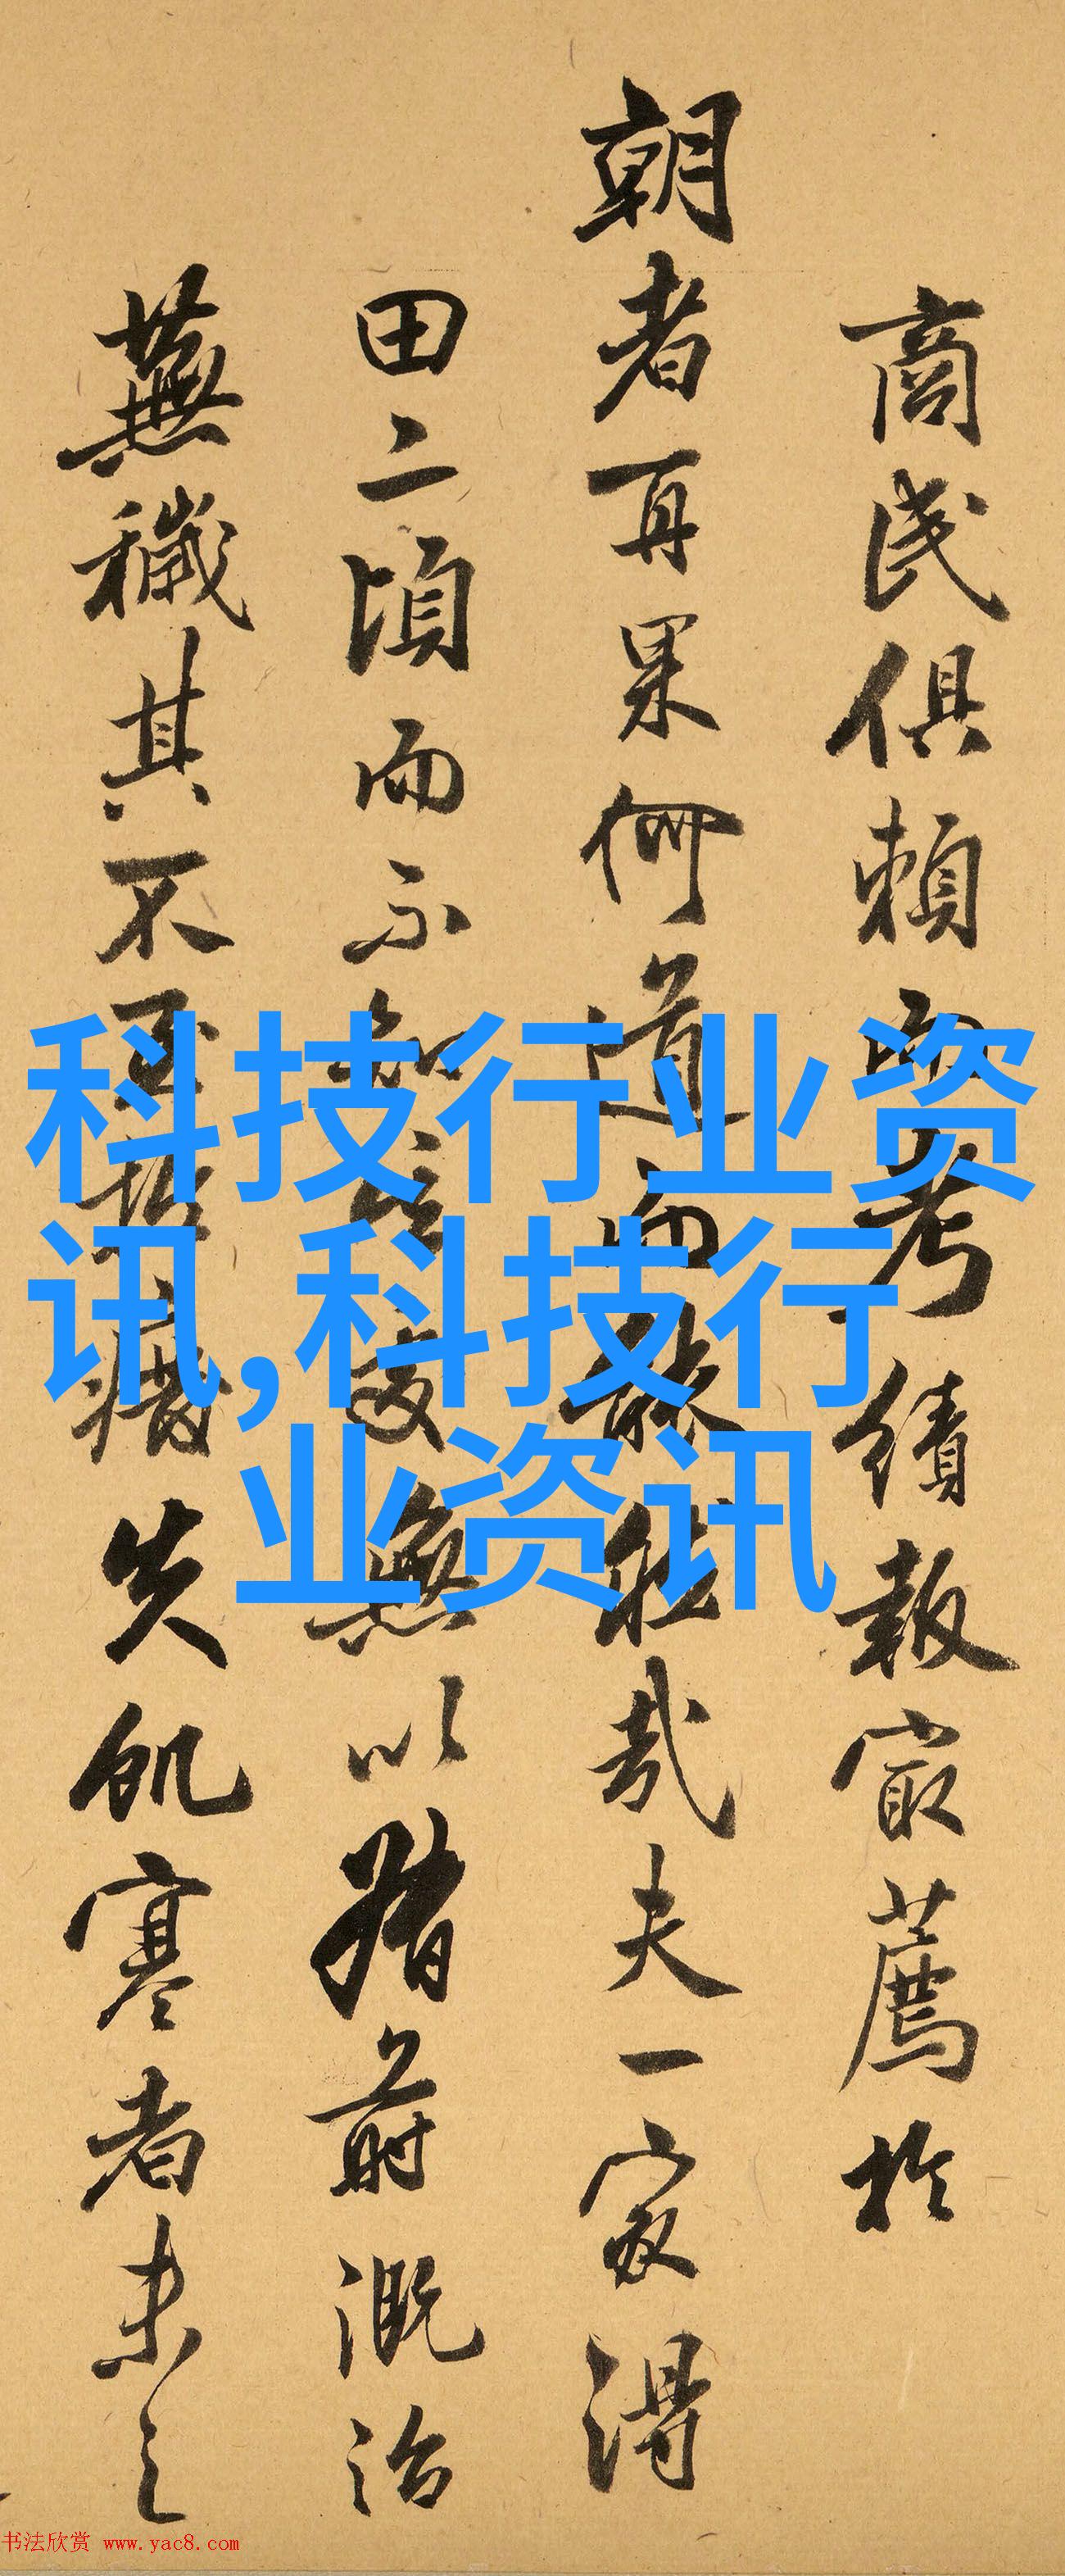 商民俱賴 考績報最薦於
朝者再果何道而能然哉夫一家得
田二頃而不知 無以贍前溉治
蕪穢其不至 癈失飢寒者未之
科技行业资
讯,科技行
业资讯
书法欣赏 www.yac8.com